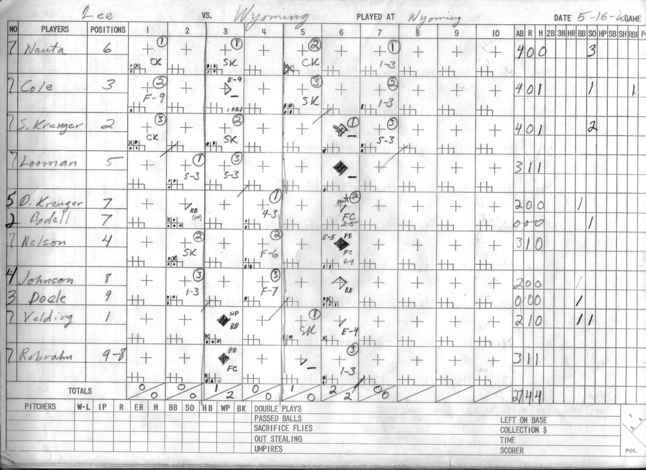 Lee VS. Wyoming PLAYED AT Wyoming DATE 5-16- GAME
NO PLAYERS POSITIONS 1 2 3 4 5 6 7 8 9 10 AB R H 2B 3B HR BB SO HP SB SH RBI
7 Nauta 6 1 CK 1 SK 2 CK 1 1-3 4 0 0 3
7 Cole 3 2 F-9 E-9 1 RBI 3 SK 2 1-3 4 0 1 1 1
7 S. Krenger 2 3 CK 2 SK 1 3 5-3 4 0 1 2
7 Looman 5 1 5-3 3 5-3 3 1 1
5 D. Krenger 7 BB 1 4-3 2 FC 2-5 2 0 0 1
2 Bodell 7 0 0 0 1
7 Nelson 4 2 SK 2 F-6 E-5 PB FC 3 1 0
4 Johnson 8 3 1-3 3 F-7 BB 2 0 0 1
3 Doele 9 0 0 0 1
7 Velding 1 WP BB 1 SK E-4 2 1 0 1 1
7 Robrahn 9-8 BB FC 3 1-3 3 1 1
TOTALS 0 0 0 0 1 2 0 0 1 0 2 2 0 0 27 4 4
PITCHERS W-L IP R ER H BB SO HB WP BK DOUBLE PLAYS
PASSED BALLS LEFT ON BASE
SACRIFICE FLIES COLLECTION $
OUT STEALING TIME
UMPIRES SCORER POS.